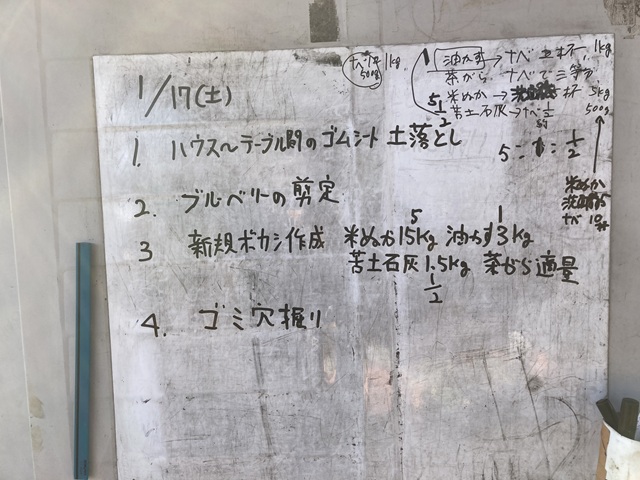 1/17(土)
1. ハウス〜テーブル間のゴムシート 土落とし
2. ブルーベリーの剪定
3 新規ボカシ作成 米ぬか15kg 油かす3kg
5 1
苦土石灰1.5kg 茶がら適量
1/2
4. ゴミ穴掘り
ナベ1杯 1kg
500g
1 油かす→ナベ 杯 1kg
茶がら ナベで三等分
5 米ぬか→ 杯 5kg
1/2 苦土石灰→ナベ1/2 500g
5:1:1/2
米ぬか
ナベ10杯